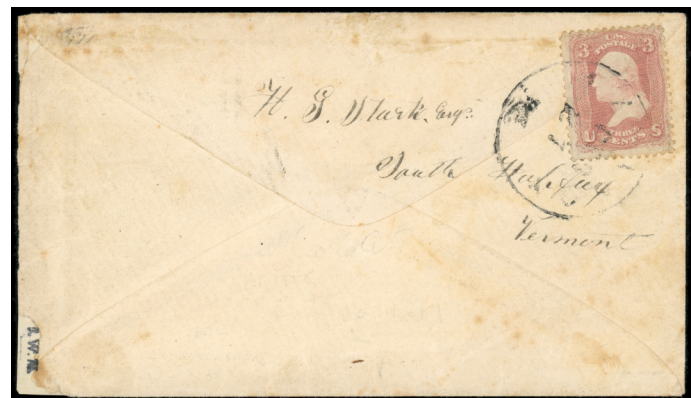 3 U.S. 3
POSTAGE
THREE
U CENTS S
H. S. Stark, Esqr.
South Halifax
Vermont